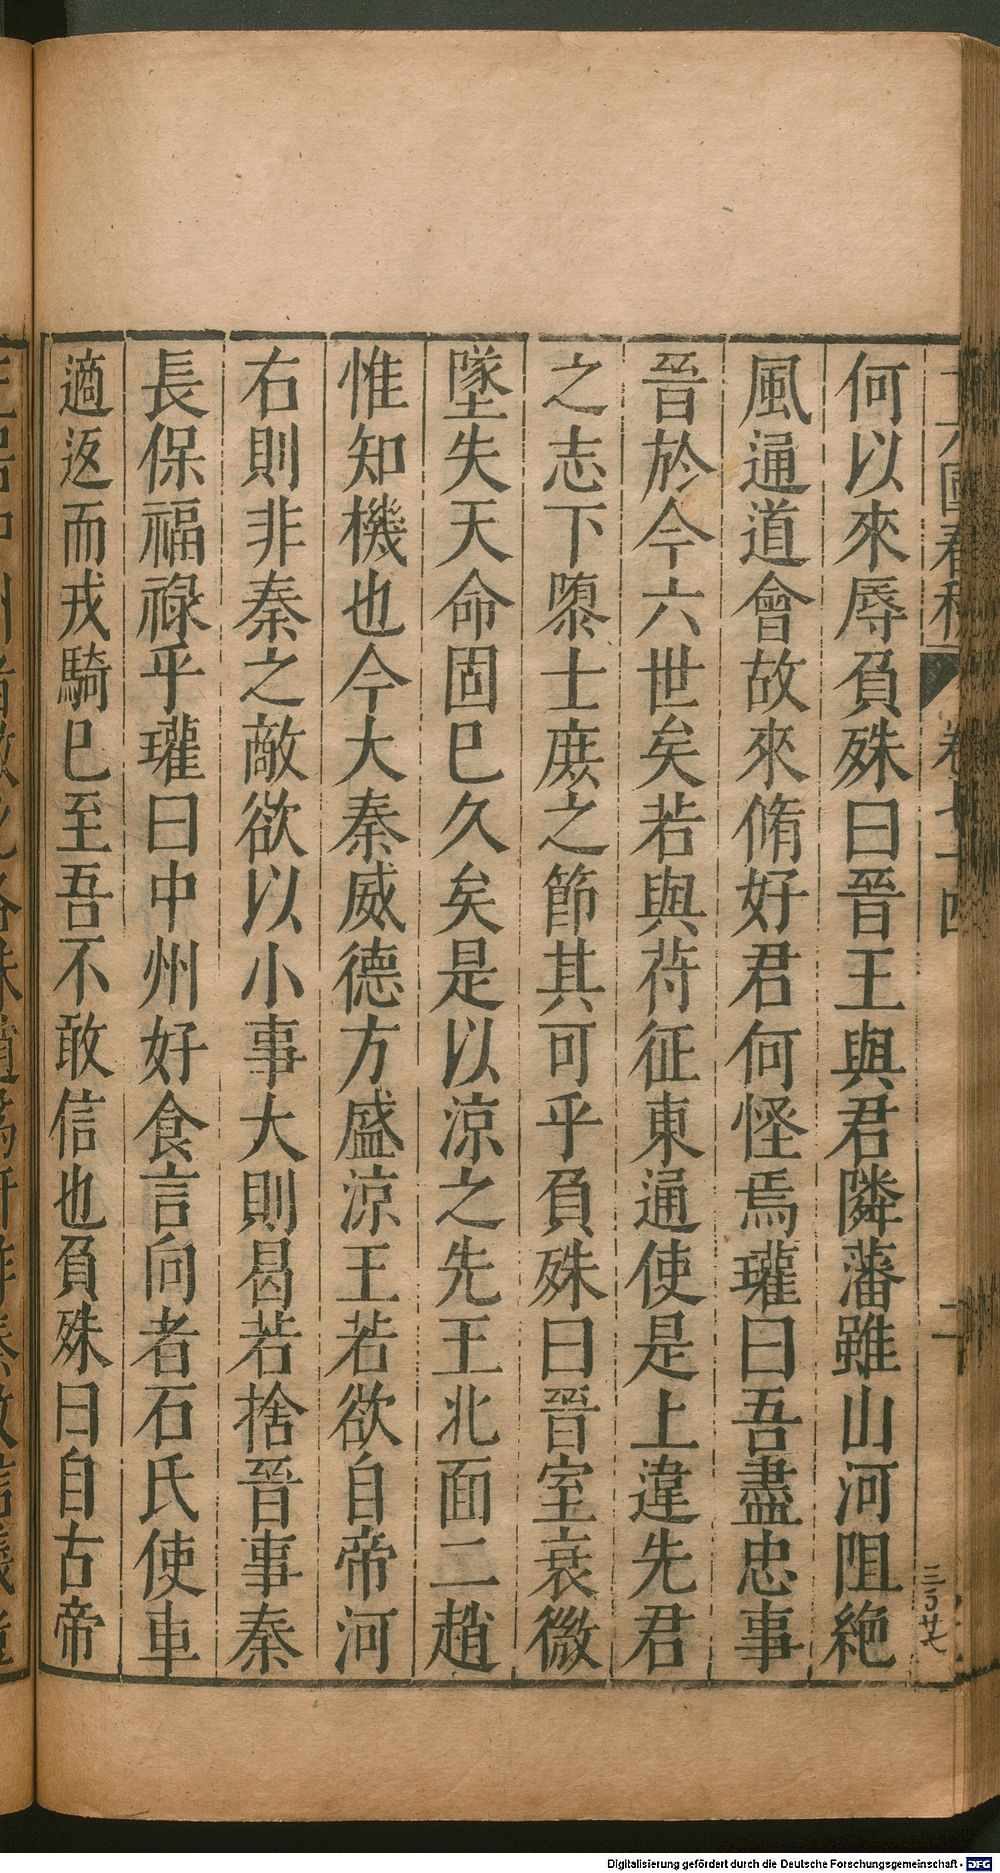 何以來辱負殊曰晉王與君隣藩雖山河阻絶
風通道會故來脩好君何怪焉瓘曰吾盡忠事
晉於今六世矣若與苻征東通使是上違先君
之志下隳士庶之節其可乎負殊曰晉室衰微
墜失天命固巳久矣是以涼之先王北面二趙
惟知機也今大秦威德方盛涼王若欲自帝河
右則非秦之敵欲以小事大則曷若捨晉事秦
長保福祿乎瓘曰中州好食言向者石氏使車
適返而戎騎巳至吾不敢信也負殊曰自古帝
Digitalisierung gefördert durch die Deutsche Forschungsgemeinschaft - DFG